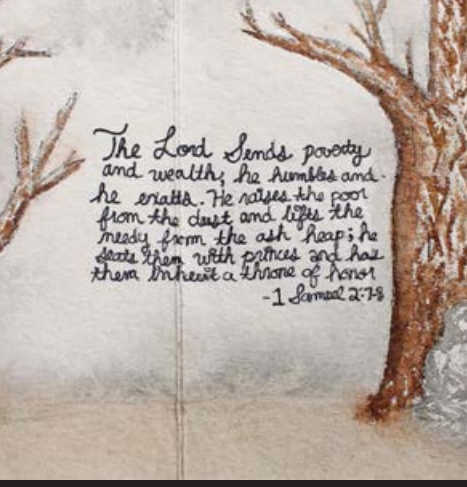 The Lord Sends poverty
and wealth; he humbles and
he exalts. He raises the poor
from the dust and lifts the
needy from the ash heap; he
seats them with princes and has
them inherit a throne of honor
-1 Samuel 2:7-8